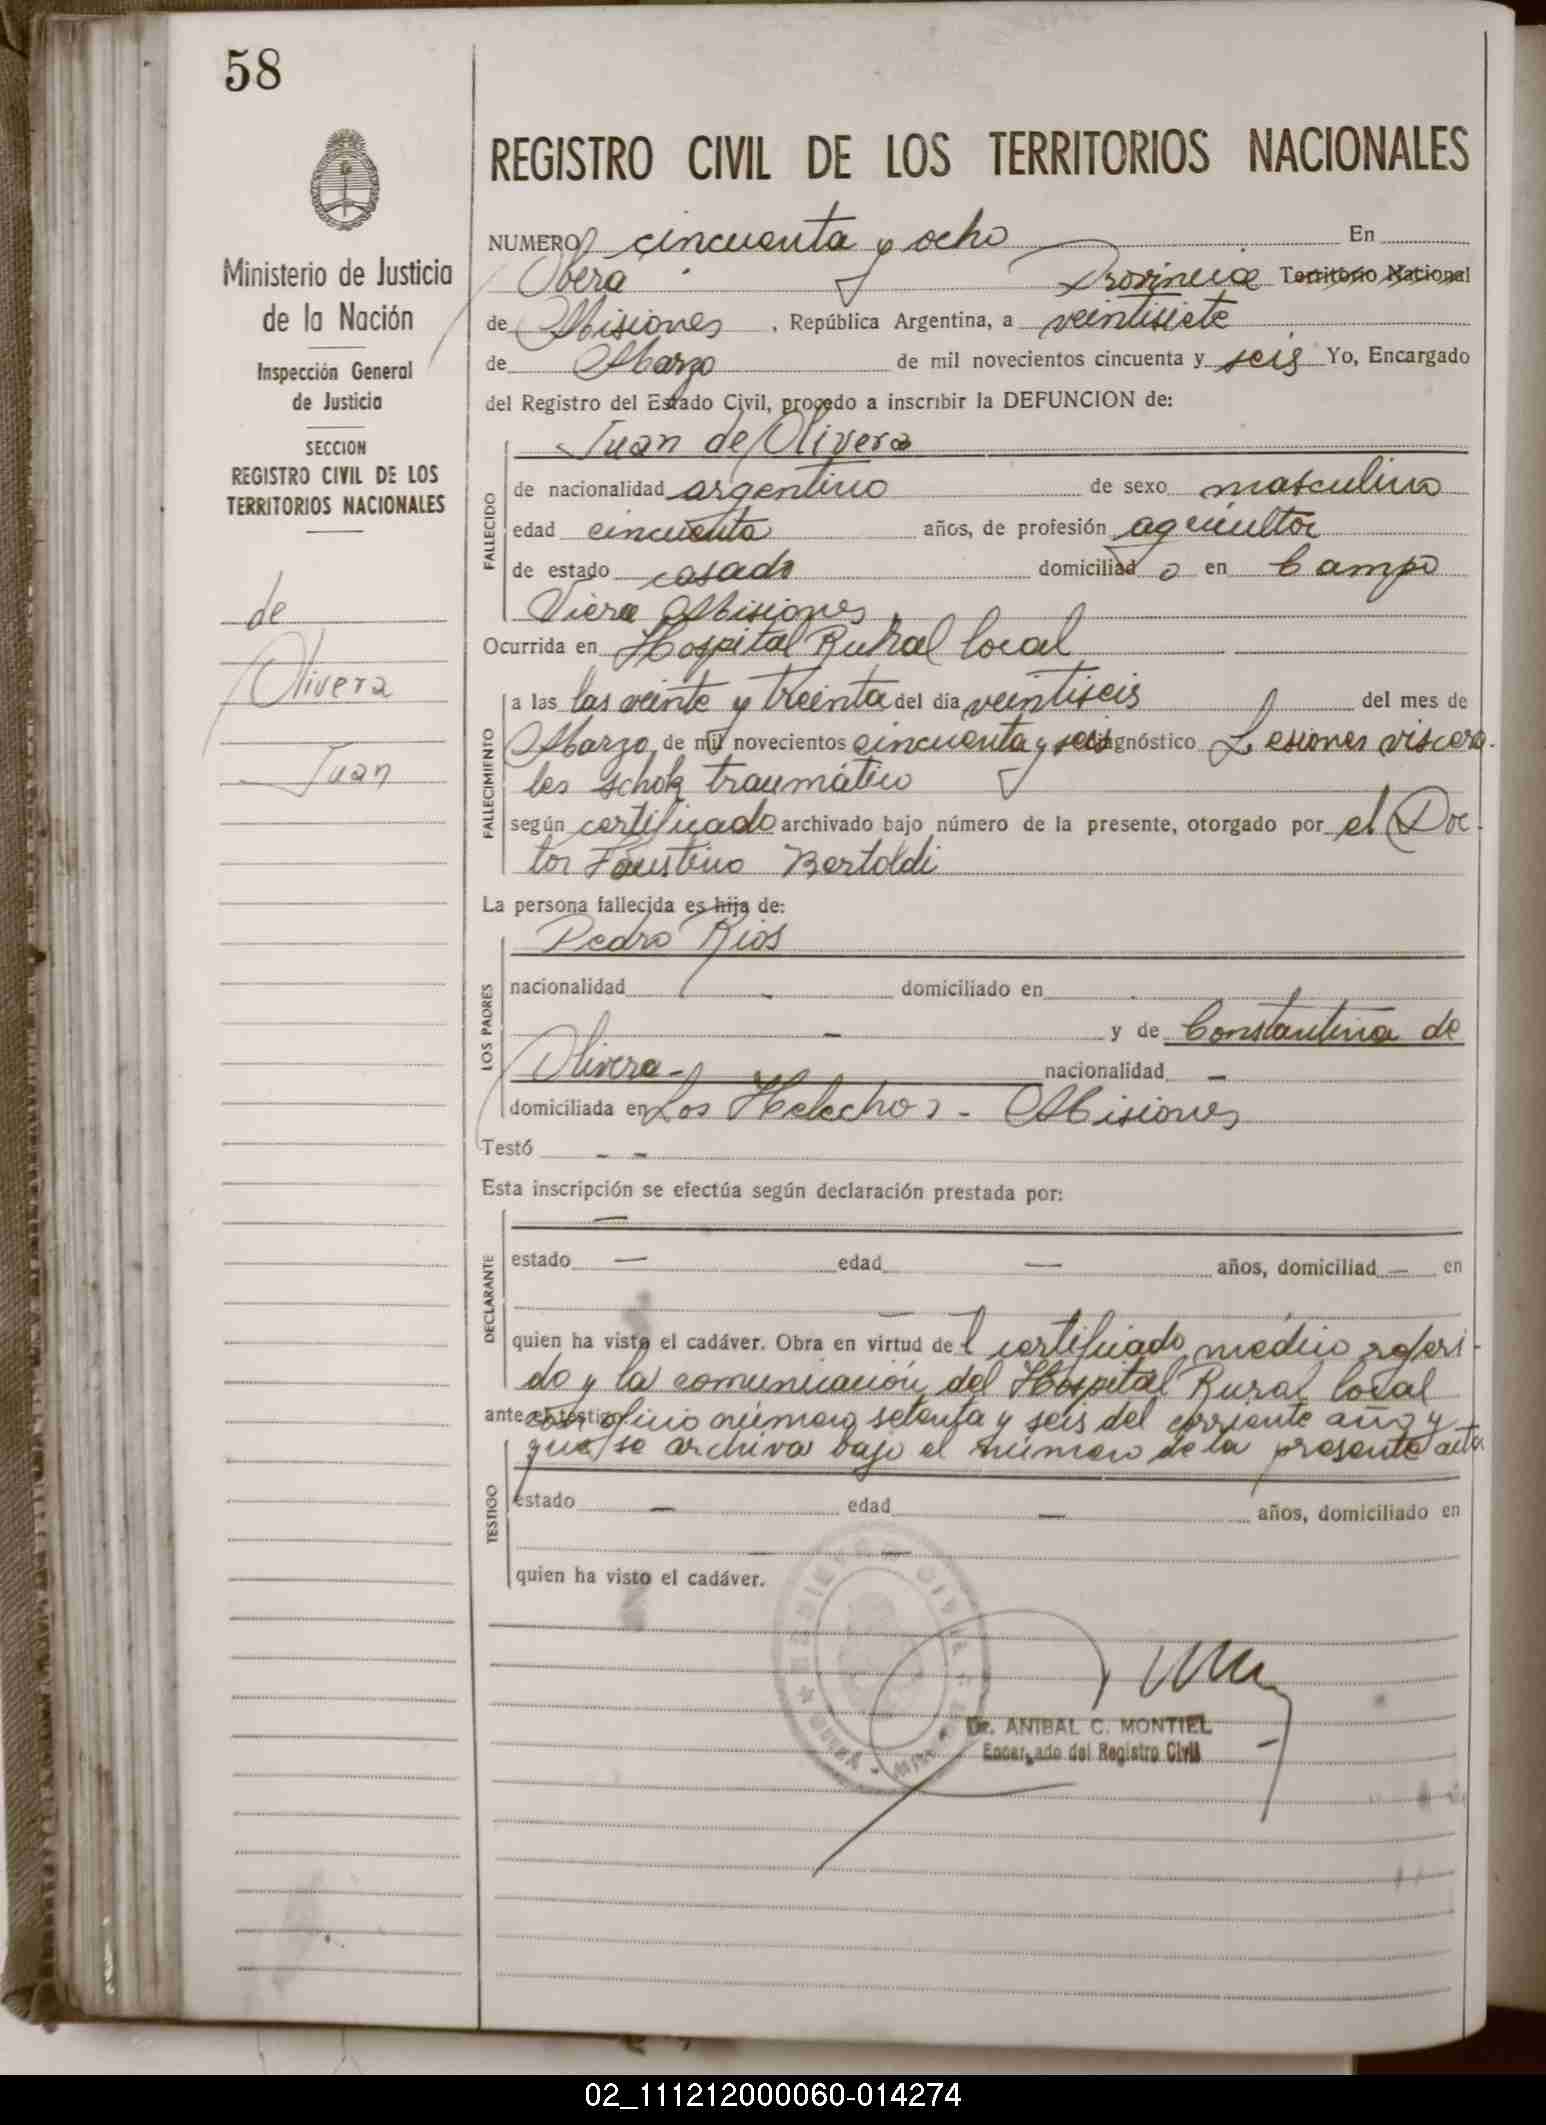 58
REGISTRO CIVIL DE LOS TERRITORIOS NACIONALES
Ministerio de Justicia
de la Nación
Inspección General
de Justicia
SECCION
REGISTRO CIVIL DE LOS
TERRITORIOS NACIONALES
de
Olivera
Juan
NUMERO cincuenta y ocho En
Oberá Provincia Territorio Nacional
de Misiones, República Argentina, a veintisiete
de Marzo de mil novecientos cincuenta y seis Yo, Encargado
del Registro del Estado Civil, procedo a inscribir la DEFUNCION de:
Juan de Olivera
FALLECIDO
de nacionalidad argentino de sexo masculino
edad cincuenta años, de profesión agricultor
de estado casado domiciliad o en Campo
Viera Misiones
Ocurrida en Hospital Rural local
FALLECIMIENTO
a las las veinte y treinta del día veintiseis del mes de
Marzo de mil novecientos cincuenta y seis diagnóstico Lesiones viscera-
les schok traumático
según certificado archivado bajo número de la presente, otorgado por el Doc-
tor Faustino Bertoldi
La persona fallecida es hija de:
LOS PADRES
Pedro Rios
nacionalidad - domiciliado en -
- y de Constantina de
Olivera - nacionalidad -
domiciliada en Los Helechos - Misiones
Testó - -
Esta inscripción se efectúa según declaración prestada por:
DECLARANTE
—
estado — edad — años, domiciliad — en
—
quien ha visto el cadáver. Obra en virtud de l certificado medico referi-
do y la comunicación del Hospital Rural local
ante el testigo oficio número setenta y seis del corriente año y
que se archiva bajo el número de la presente acta
TESTIGO
estado — edad — años, domiciliado en
— —
quien ha visto el cadáver.
Dr. ANIBAL C. MONTIEL
Encargado del Registro Civil
02_111212000060-014274